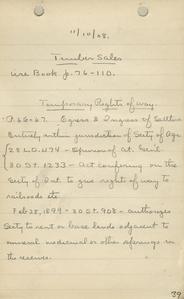 11/10/08.
Timber Sales
Use Book p. 76-110.
Temporary Rights of way.
P. 66-67. Egress & Ingress of Settlers
Entirely within jurisdiction of Secty of Agr
28 L.D. 474 - Opinion of At. Genl.
30 St. 1233 - Act conferring on the
Secty of Int. to give rights of way to
railroads etc.
Feb 28, 1899 - 30 St. 908 - authorizes
Secty to rent or lease lands adjacent to
mineral medicinal or other springs in
the reserves.
39